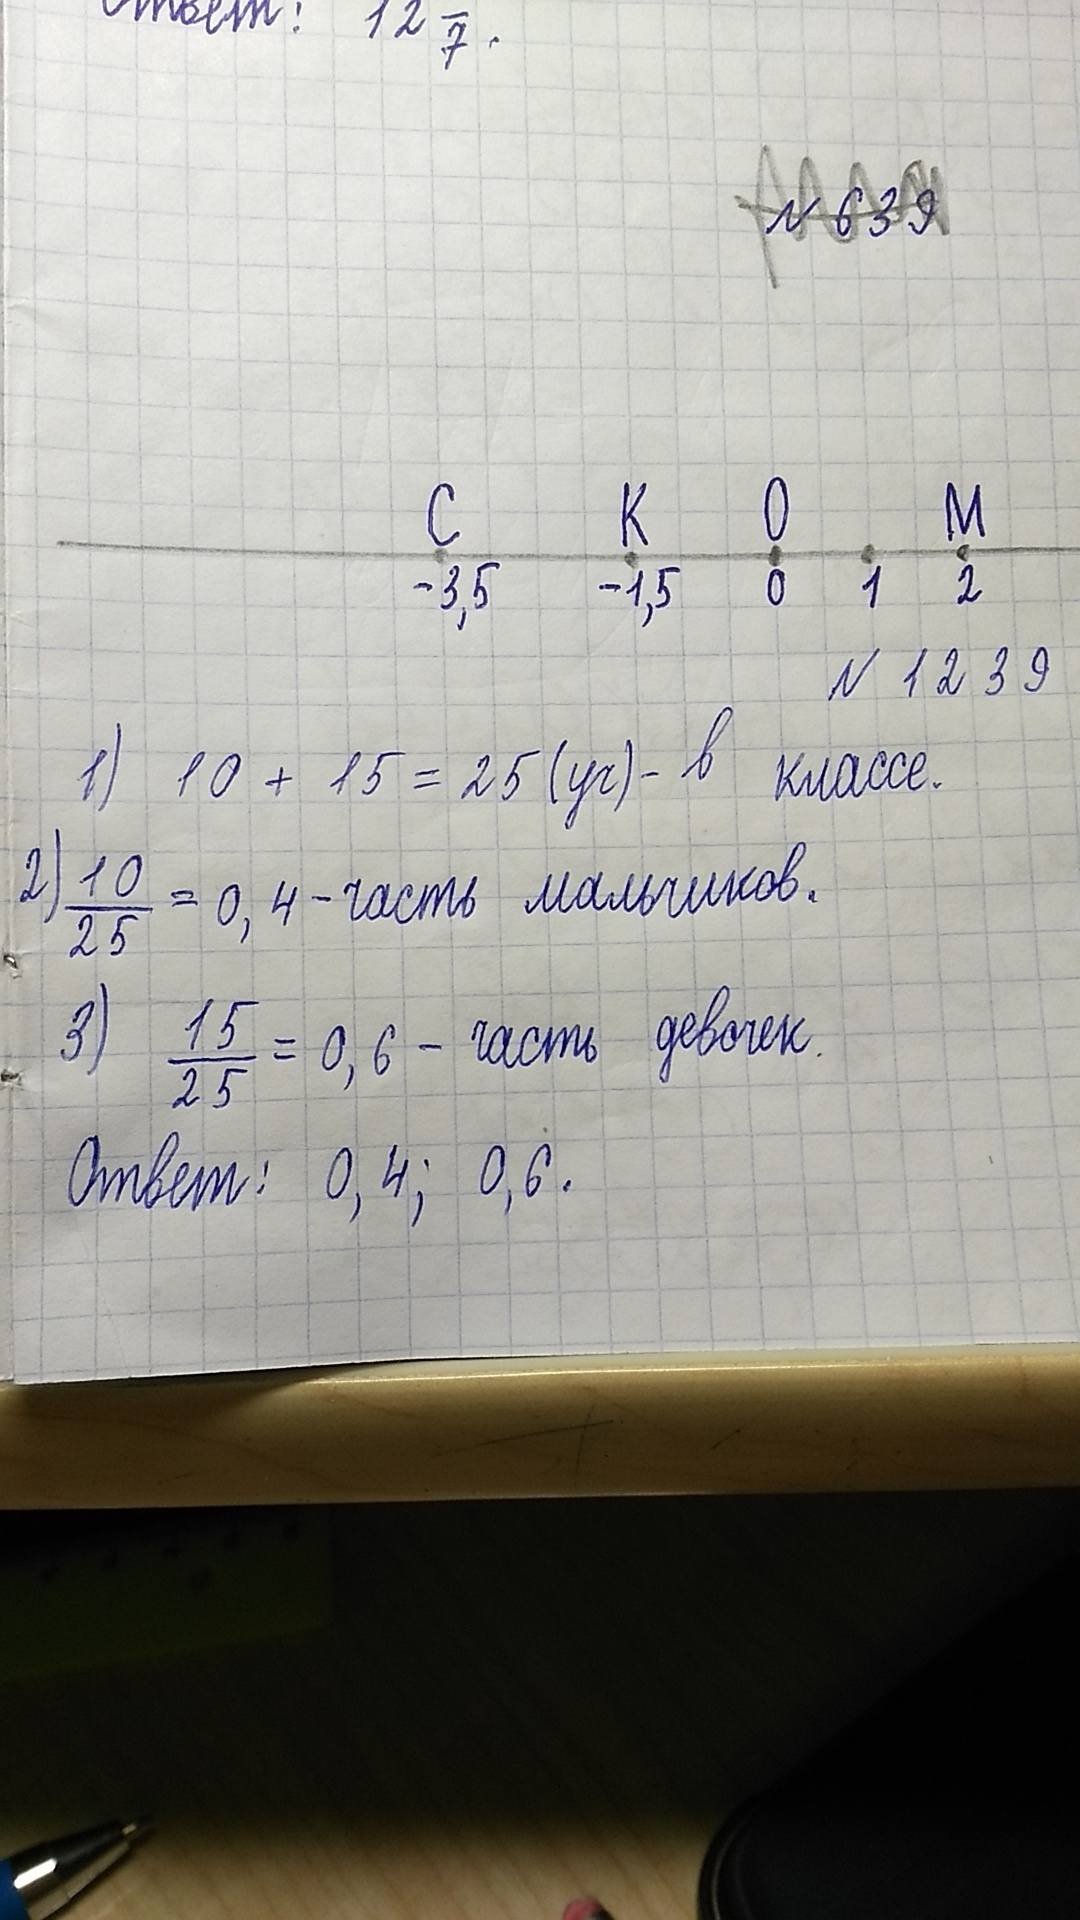 Ответ: 12 –/7.
N 639
С К О М
-3,5 -1,5 0 1 2
N 1239
1) 10 + 15 = 25 (уч) - в классе.
2) 10/25 = 0,4 - часть мальчиков.
3) 15/25 = 0,6 - часть девочек.
Ответ: 0,4; 0,6.